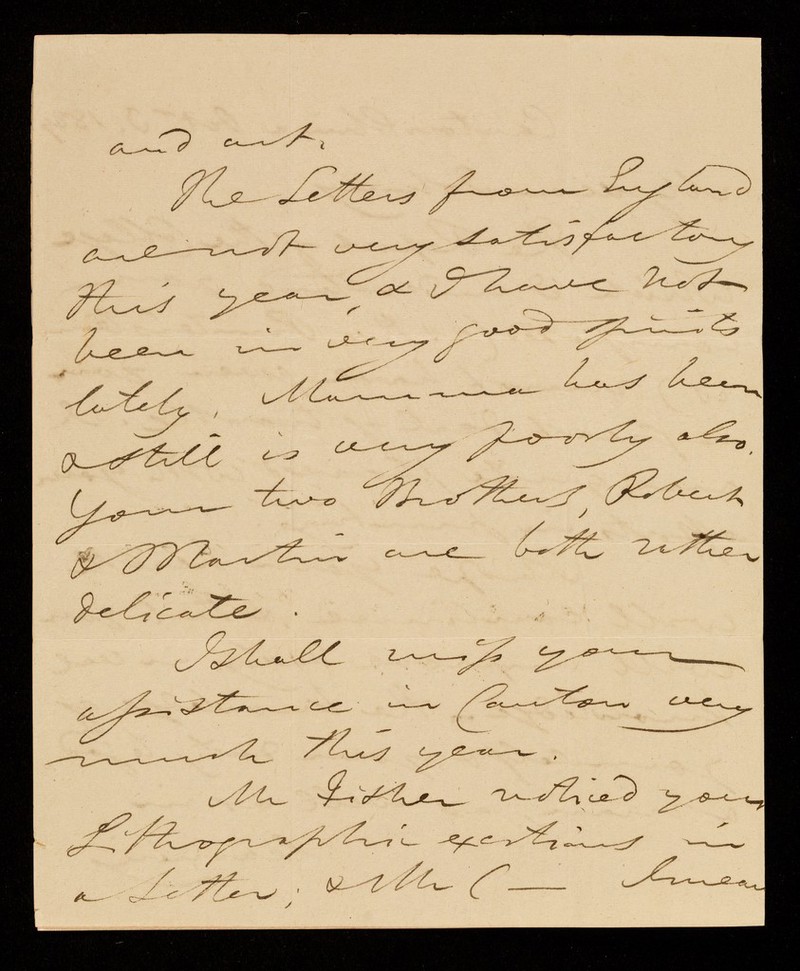 and art.
The Letters from England
are not very satisfactory
this year, & I have not
been in very good spirits
lately. Mamma has been
& still is very poorly also.
Your two Brothers, Robert
& Martin are both rather
delicate.
I shall miss your
assistance in Canton very
much this year.
Mr Fisher noticed your
Lithographic exertions in
a Letter; & Mr C — I mean